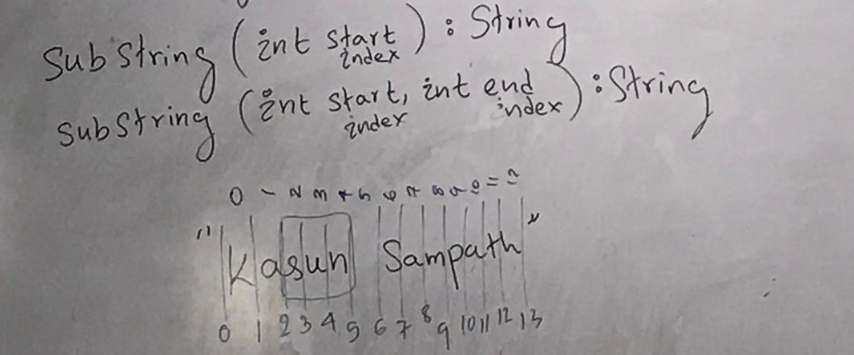 SubString (int start index) : String
subString (int start, index int end index) : String
0 1 2 3 4 5 6 7 8 9 10 11 12
"Kasun Sampath"
0 1 2 3 4 5 6 7 8 9 10 11 12 13